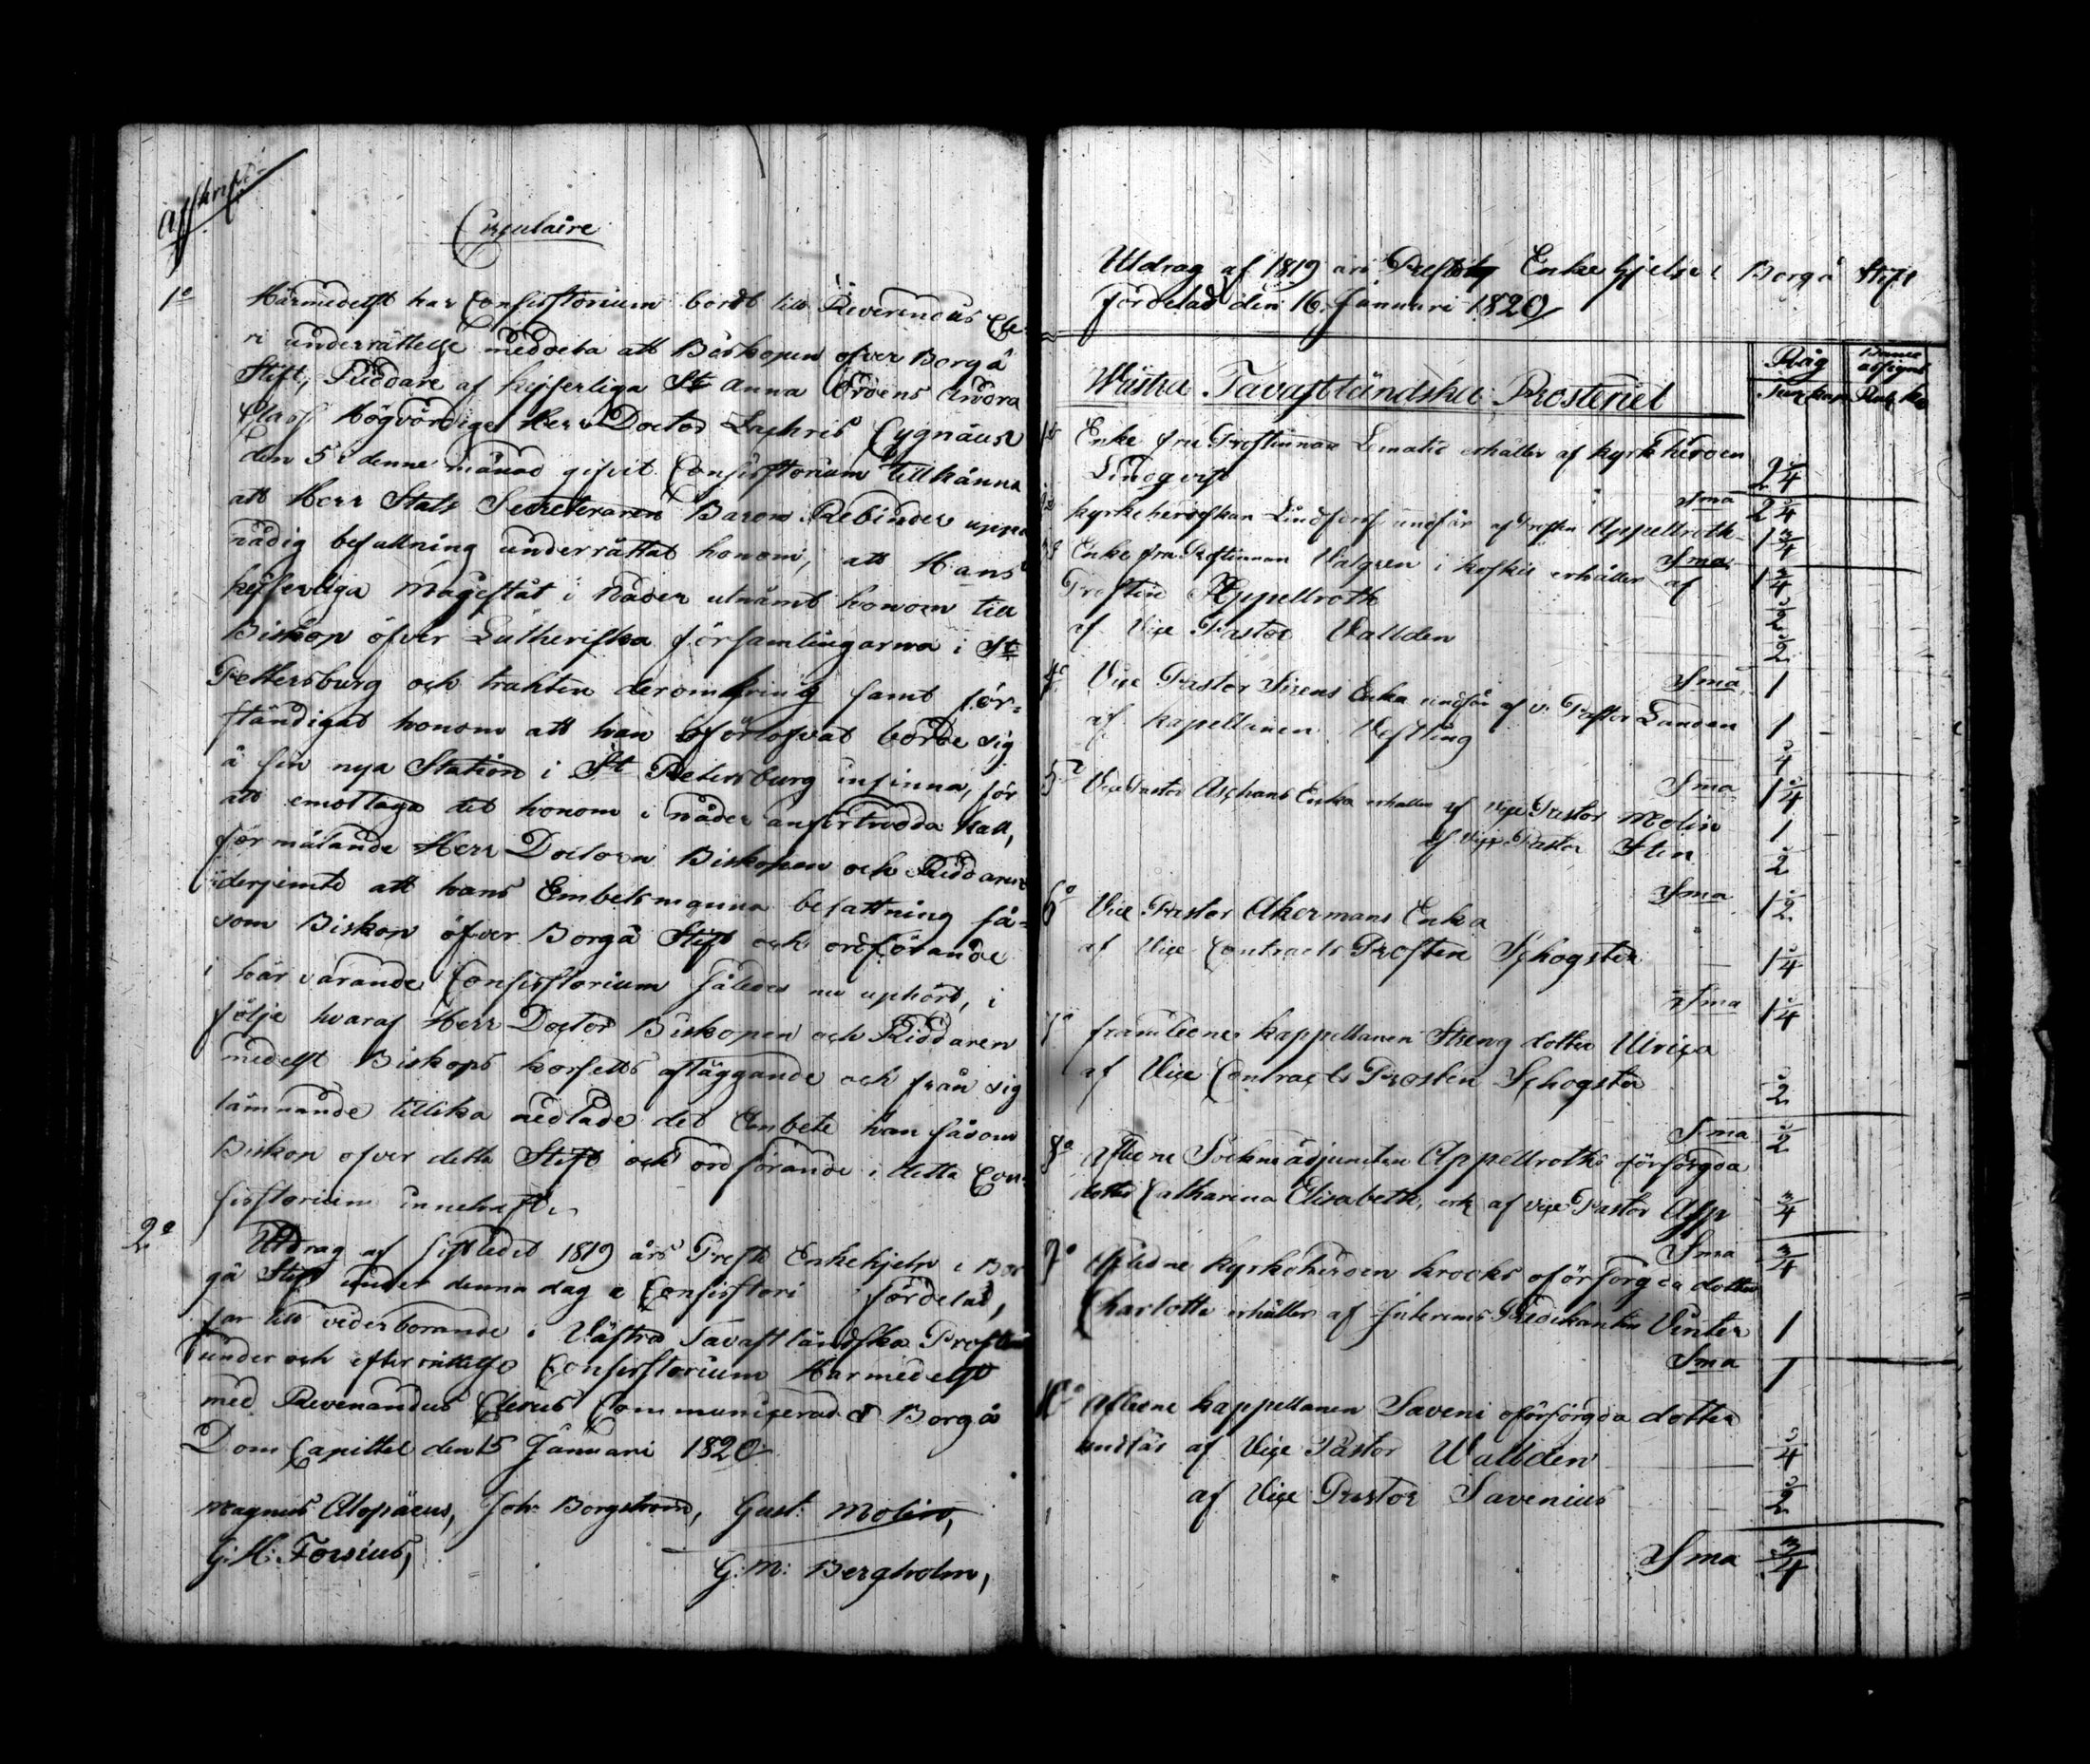 Afskrift
Circulaire
1o Härmedelst har Consistorium bordt till Reverendus Cle-
ri underrättelse meddela att Biskopen öfver Borgå
Stift, Riddare af Kejserliga St Anna Ordens Andra
Class Högvördige Herr Doctor Zachris Cygnäus
den 5 i denne månad gifvit Consistorium tillkänna
att Herr Stats Secreteraren Baron Rebinder uppå
nådig befallning underrättat honom, att Hans
Kejserliga Magestät i Nåder utnämt honom till
Biskop öfver Lutheriska församlingarna i St
Pettersburg och trakten deromkring samt för-
ständigat honom att han oförtofvat borde sig
å sin nya Station i St Petersburg infinna, för
att emottaga det honom i nåder anförtrodda Kall,
förmälande Herr Doctorn Biskopen och Riddaren
derjemte att hans Embetsmanna befattning så-
som Biskop öfver Borgå Stift och ordförande
i härvarande Consistorium således nu uphört, i
följe hvaraf Herr Doctor Biskopen och Riddaren
medelst Biskops korsets afläggande och från sig
lämnande tillika nedlade det Embete han såsom
Biskop öfver detta Stift och ordförande i detta Con-
sistorium innehaft.
2o Utdrag af sistledit 1819 års Preste Enkehjelp i Bor
gå Stift under denna dag a Consistori fördelad,
far till vederborande i Västra Tavastländska Proste
under och efterrättelse Consistorium Harmedelst
med Reverandus Clerus Communicerad d Borgå
Dom Capittel den 15 Januari 1820
Magnus Alopäeus, Joh: Borgström, Gust: Molin,
G: H: Forsius,
G: M: Bergholm,
Utdrag af 1819 års Enke hjelpe i Borgå Stift
fördelad den 16 Januari 1820
Råg
Banco assigns
Wästra Tavastländska Prosteriet
Tun kap Rub k
1o Enke fru Prostinnan Lematic erhåller af Kyrkoherden
Lindqvist 2 1/4
Sma 2 1/4
2o Kyrkoherdskan Lindfors undfår af Prosten Appellroth 1 3/4
Sma 1 3/4
3o Enke fru Prostinnan Valgren i Koskis erhåller af
Prosten Appellroth 1/2
af Vice Pastor Vallden 1/2
Sma 1
4o Vice Pastor Sirens Enka undfår af v: Pastor Landen 1
af kapellanen Vestling 1/4
Sma 1 1/4
5o Vice Pastor Aschans Enka erhaller af vice Pastor Molin 1
af vice Pastor Sten 1/2
Sma 1 1/2
6o Vice Pastor Akermans Enka
af Vice Contracts Prosten Schogster 1 1/4
Sma 1 1/4
7o framledne kappellanen Streng dotter Ulrica
af Vice Contracts Prosten Schogster 1/2
Sma 1/2
8o Afledne Sockneadjuncten Appellroths oförsörgda
dotter Catharina Elisabeth, erh af vice Pastor Asp 3/4
Sma 3/4
9o Afledne Kyrkoherden Krooks oförsörgda dotter
Charlotte erhåller af Interims Predikanten Vinter 1
Sma 1
10o Afledne kappellanen Saveni oförsörgda dotter
undfår af Vice Pastor Wallden 1/4
af Vice Pastor Savenius 1/2
Sma 3/4